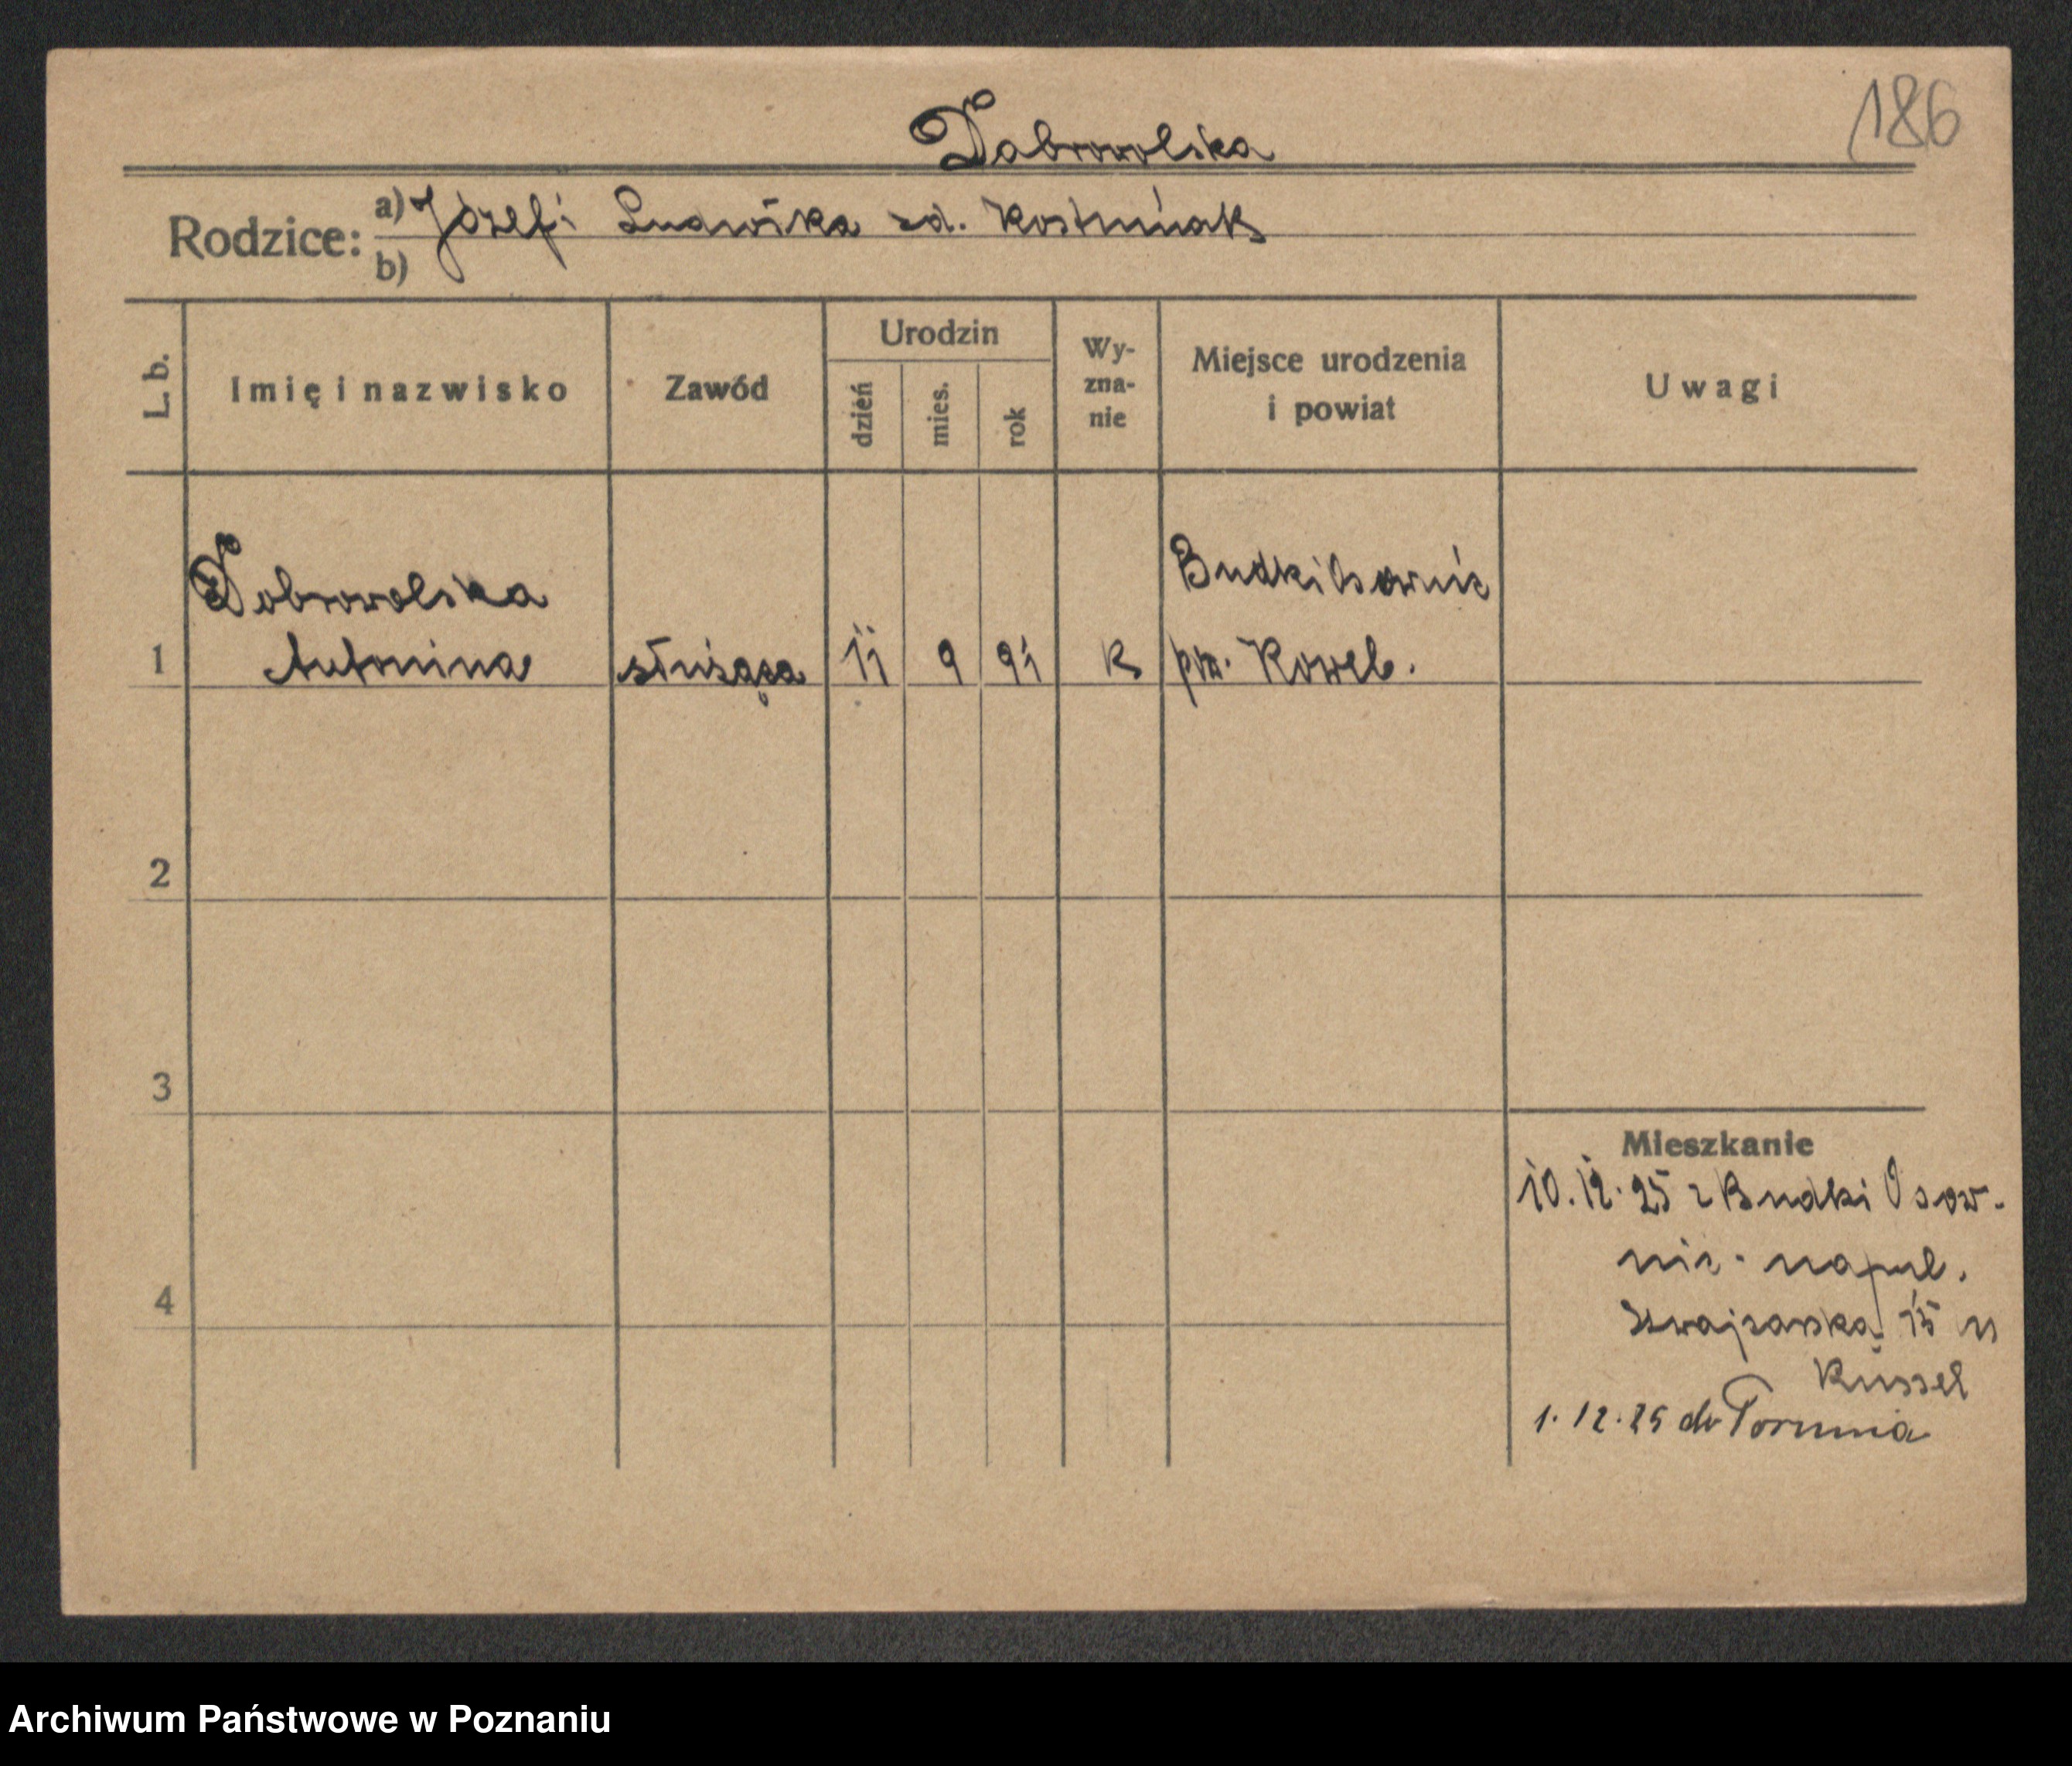 186
Dobrowolska
Rodzice: a) Józef i Ludwika zd. Kostrniak
b)
L. b.
Imię i nazwisko
Zawód
Urodzin
dzień
mies.
rok
Wy-
zna-
nie
Miejsce urodzenia
i powiat
Uwagi
1
Dobrowolska
Antonina
służąca
11
9
91
K
Budki Osownic
pow. Kowel.
2
3
4
Mieszkanie
z Budki Osow-
nic - na pul.
Szwajcarska 15 u
Küssel
1. 12. 25 do Torunia
Archiwum Państwowe w Poznaniu